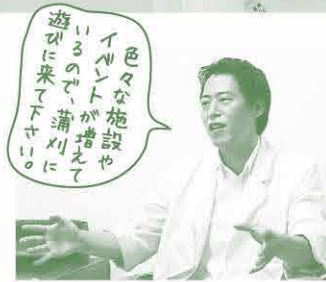 色々な施設や
イベントが増えて
いるので、蒲刈に
遊びに来て下さい。